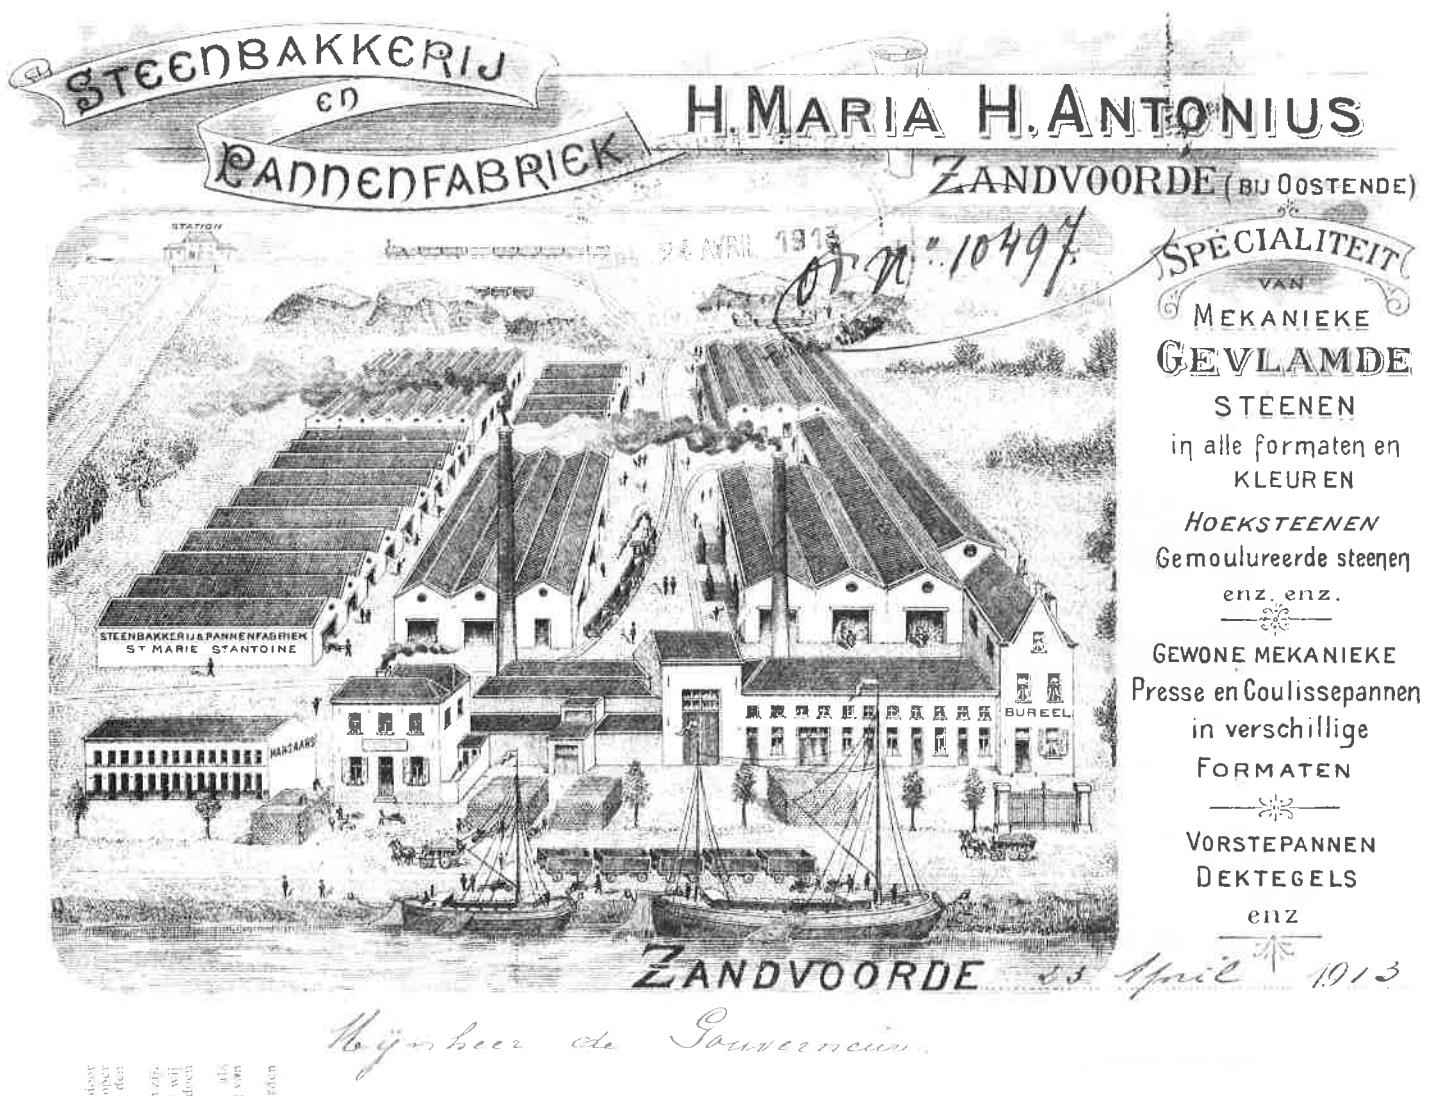 STEENBAKKERIJ
EN
PANNENFABRIEK
H. MARIA H. ANTONIUS
ZANDVOORDE (BIJ OOSTENDE)
STATION
24 AVRIL 1913
N° 10497
SPECIALITEIT
VAN
MEKANIEKE
GEVLAMDE
STEENEN
in alle formaten en
KLEUREN
HOEKSTEENEN
Gemoulureerde steenen
enz. enz.
GEWONE MEKANIEKE
Presse en Coulissepannen
in verschillige
FORMATEN
VORSTEPANNEN
DEKTEGELS
enz
STEENBAKKERIJ & PANNENFABRIEK
ST MARIE ST ANTOINE
BUREEL
HANGAARS
ZANDVOORDE 23 April 1913
Mijnheer de Gouverneur